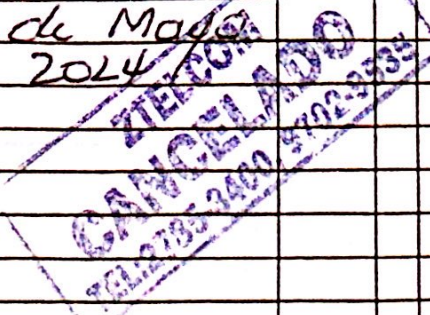 de Mayo
2024
ZTELCOM
CANCELADO
TEL:2785-3400, 9702-9535